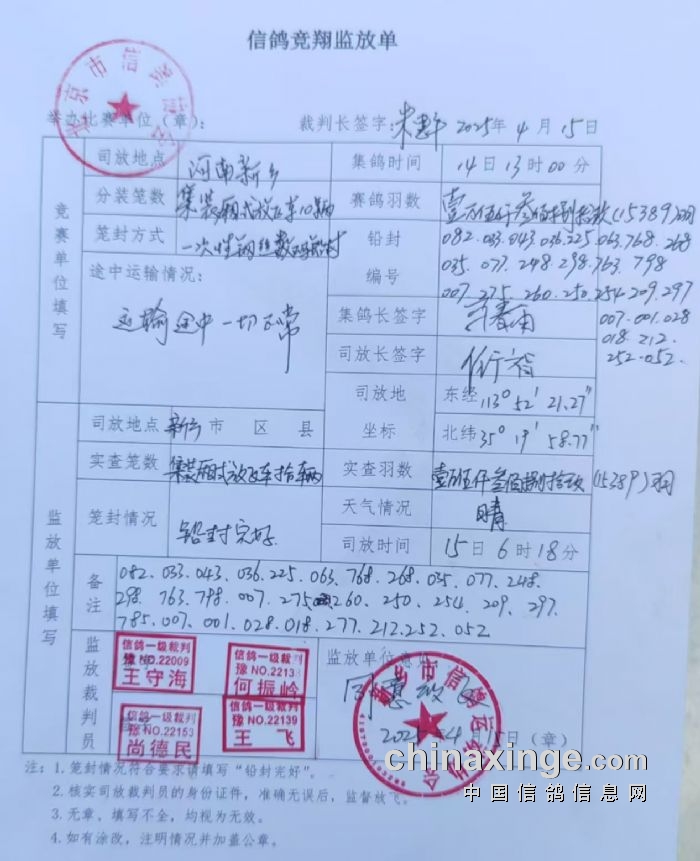 信鸽竞翔监放单
举办比赛单位（章）： 裁判长签字： 2025年4月15日
竞赛单位填写
司放地点 河南新乡 集鸽时间 14日13时00分
分装笼数 集装厢式放飞车10辆 赛鸽羽数 壹万伍仟叁佰捌拾玖(15389)羽
笼封方式 一次性钢丝数码铅封 铅封编号 082.033.043.036.225.063.768.268
035.077.248.298.763.798
007.275.260.250.254.209.297
007.001.028
018.212.
252.052.
途中运输情况：
运输途中一切正常
集鸽长签字
司放长签字
司放地坐标 东经113°52′21.27″
北纬35°19′58.77″
监放单位填写
司放地点 新乡市 区 县
实查笼数 集装厢式放飞车拾辆 实查羽数 壹万伍仟叁佰捌拾玖(15389)羽
笼封情况 铅封完好 天气情况 晴
司放时间 15日6时18分
备注 082.033.043.036.225.063.768.268.035.077.248.
298.763.798.007.275.260.250.254.209.297.
785.007.001.028.018.277.212.252.052
监放裁判员
信鸽一级裁判
豫NO.22009
王守海
信鸽一级裁判
豫NO.2213
何振岭
信鸽一级裁判
豫NO.22153
尚德民
信鸽一级裁判
豫NO.22139
王飞
监放单位意见
同意放飞
2025年4月15日（章）
注：1.笼封情况符合要求请填写“铅封完好”。
2.核实司放裁判员的身份证件，准确无误后，监督放飞。
3.无章、填写不全，均视为无效。
4.如有涂改，注明情况并加盖公章。
chinaxinge.com
中国信鸽信息网